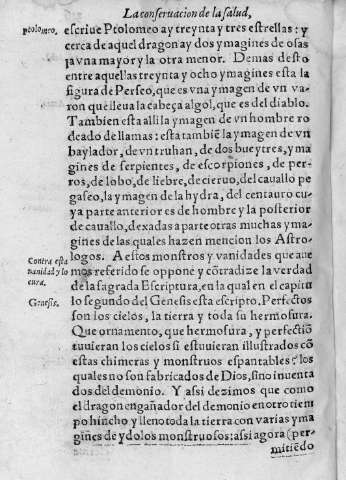 La conseruacion de la salud,
ptolomeo.
escriue Ptolomeo ay treynta y tres estrellas: y
cerca de aquel dragon ay dos ymagines de osas
la vna mayor y la otra menor. Demas desto
entre aquellas treynta y ocho ymagines esta la
figura de Perseo, que es vna ymagen de vn va-
ron que lleua la cabeça algol, que es del diablo.
Tambien esta alli la ymagen de vn hombre ro
deado de llamas: esta tambiẽ la ymagen de vn
baylador, de vn truhan, de dos bueytres, y ma
gines de serpientes, de escorpiones, de per-
ros, de lobo, de liebre, de cieruo, del cauallo pe
gaseo, la ymagen de la hydra, del centauro cu-
ya parte anterior es de hombre y la posterior
de cauallo, dexadas a parte otras muchas yma-
gines de las quales hazen mencion los Astro-
logos. A estos monstros y vanidades que aue
Contra esta
vanidad y lo
cura.
mos referido se oppone y cõtradize la verdad
de la sagrada Escriptura, en la qual en el capitu
Genesis.
lo segundo del Genesis esta escripto, Perfectos
son los cielos, la tierra y toda su hermosura.
Que ornamento, que hermosura, y perfectiõ
tuuieran los cielos si estuuieran illustrados cõ
estas chimeras y monstruos espantables? los
quales no son fabricados de Dios, sino inuenta
dos del demonio. Y assi dezimos que como
el dragon engañador del demonio en otro tiem
po hincho y lleno toda la tierra con varias yma
gines de ydolos monstruosos: assi agora (per-
mitiẽdo